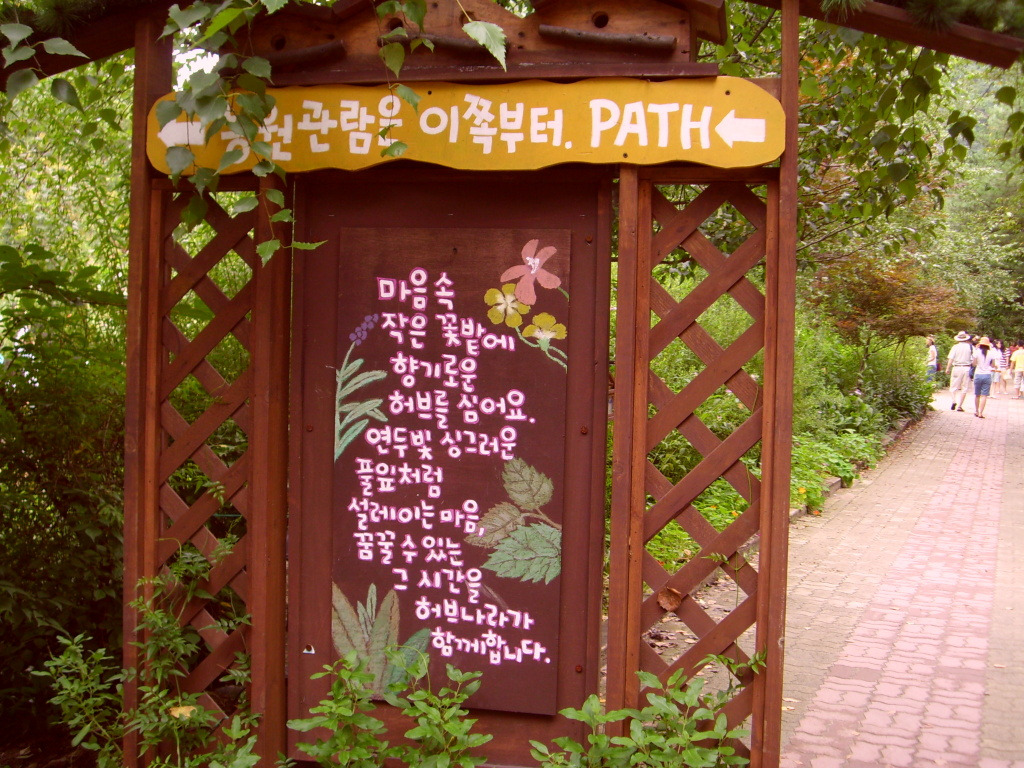 관람은 이쪽부터. PATH
마음속
작은 꽃밭에
향기로운
허브를 심어요.
연두빛 싱그러운
풀잎처럼
설레이는 마음,
꿈꿀 수 있는
그 시간을
허브나라가
함께합니다.